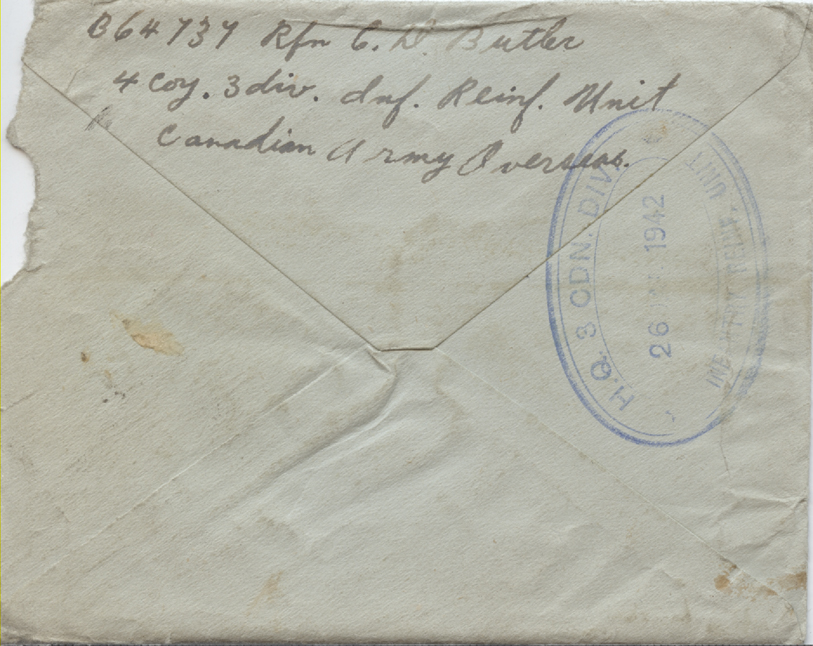 B64737 Rfn C. D. Butler
4 Coy. 3 div. Inf. Reinf. Unit
Canadian Army Overseas.
H.Q. 3 CDN. DIV.
26 1942
INF. REINF. UNIT